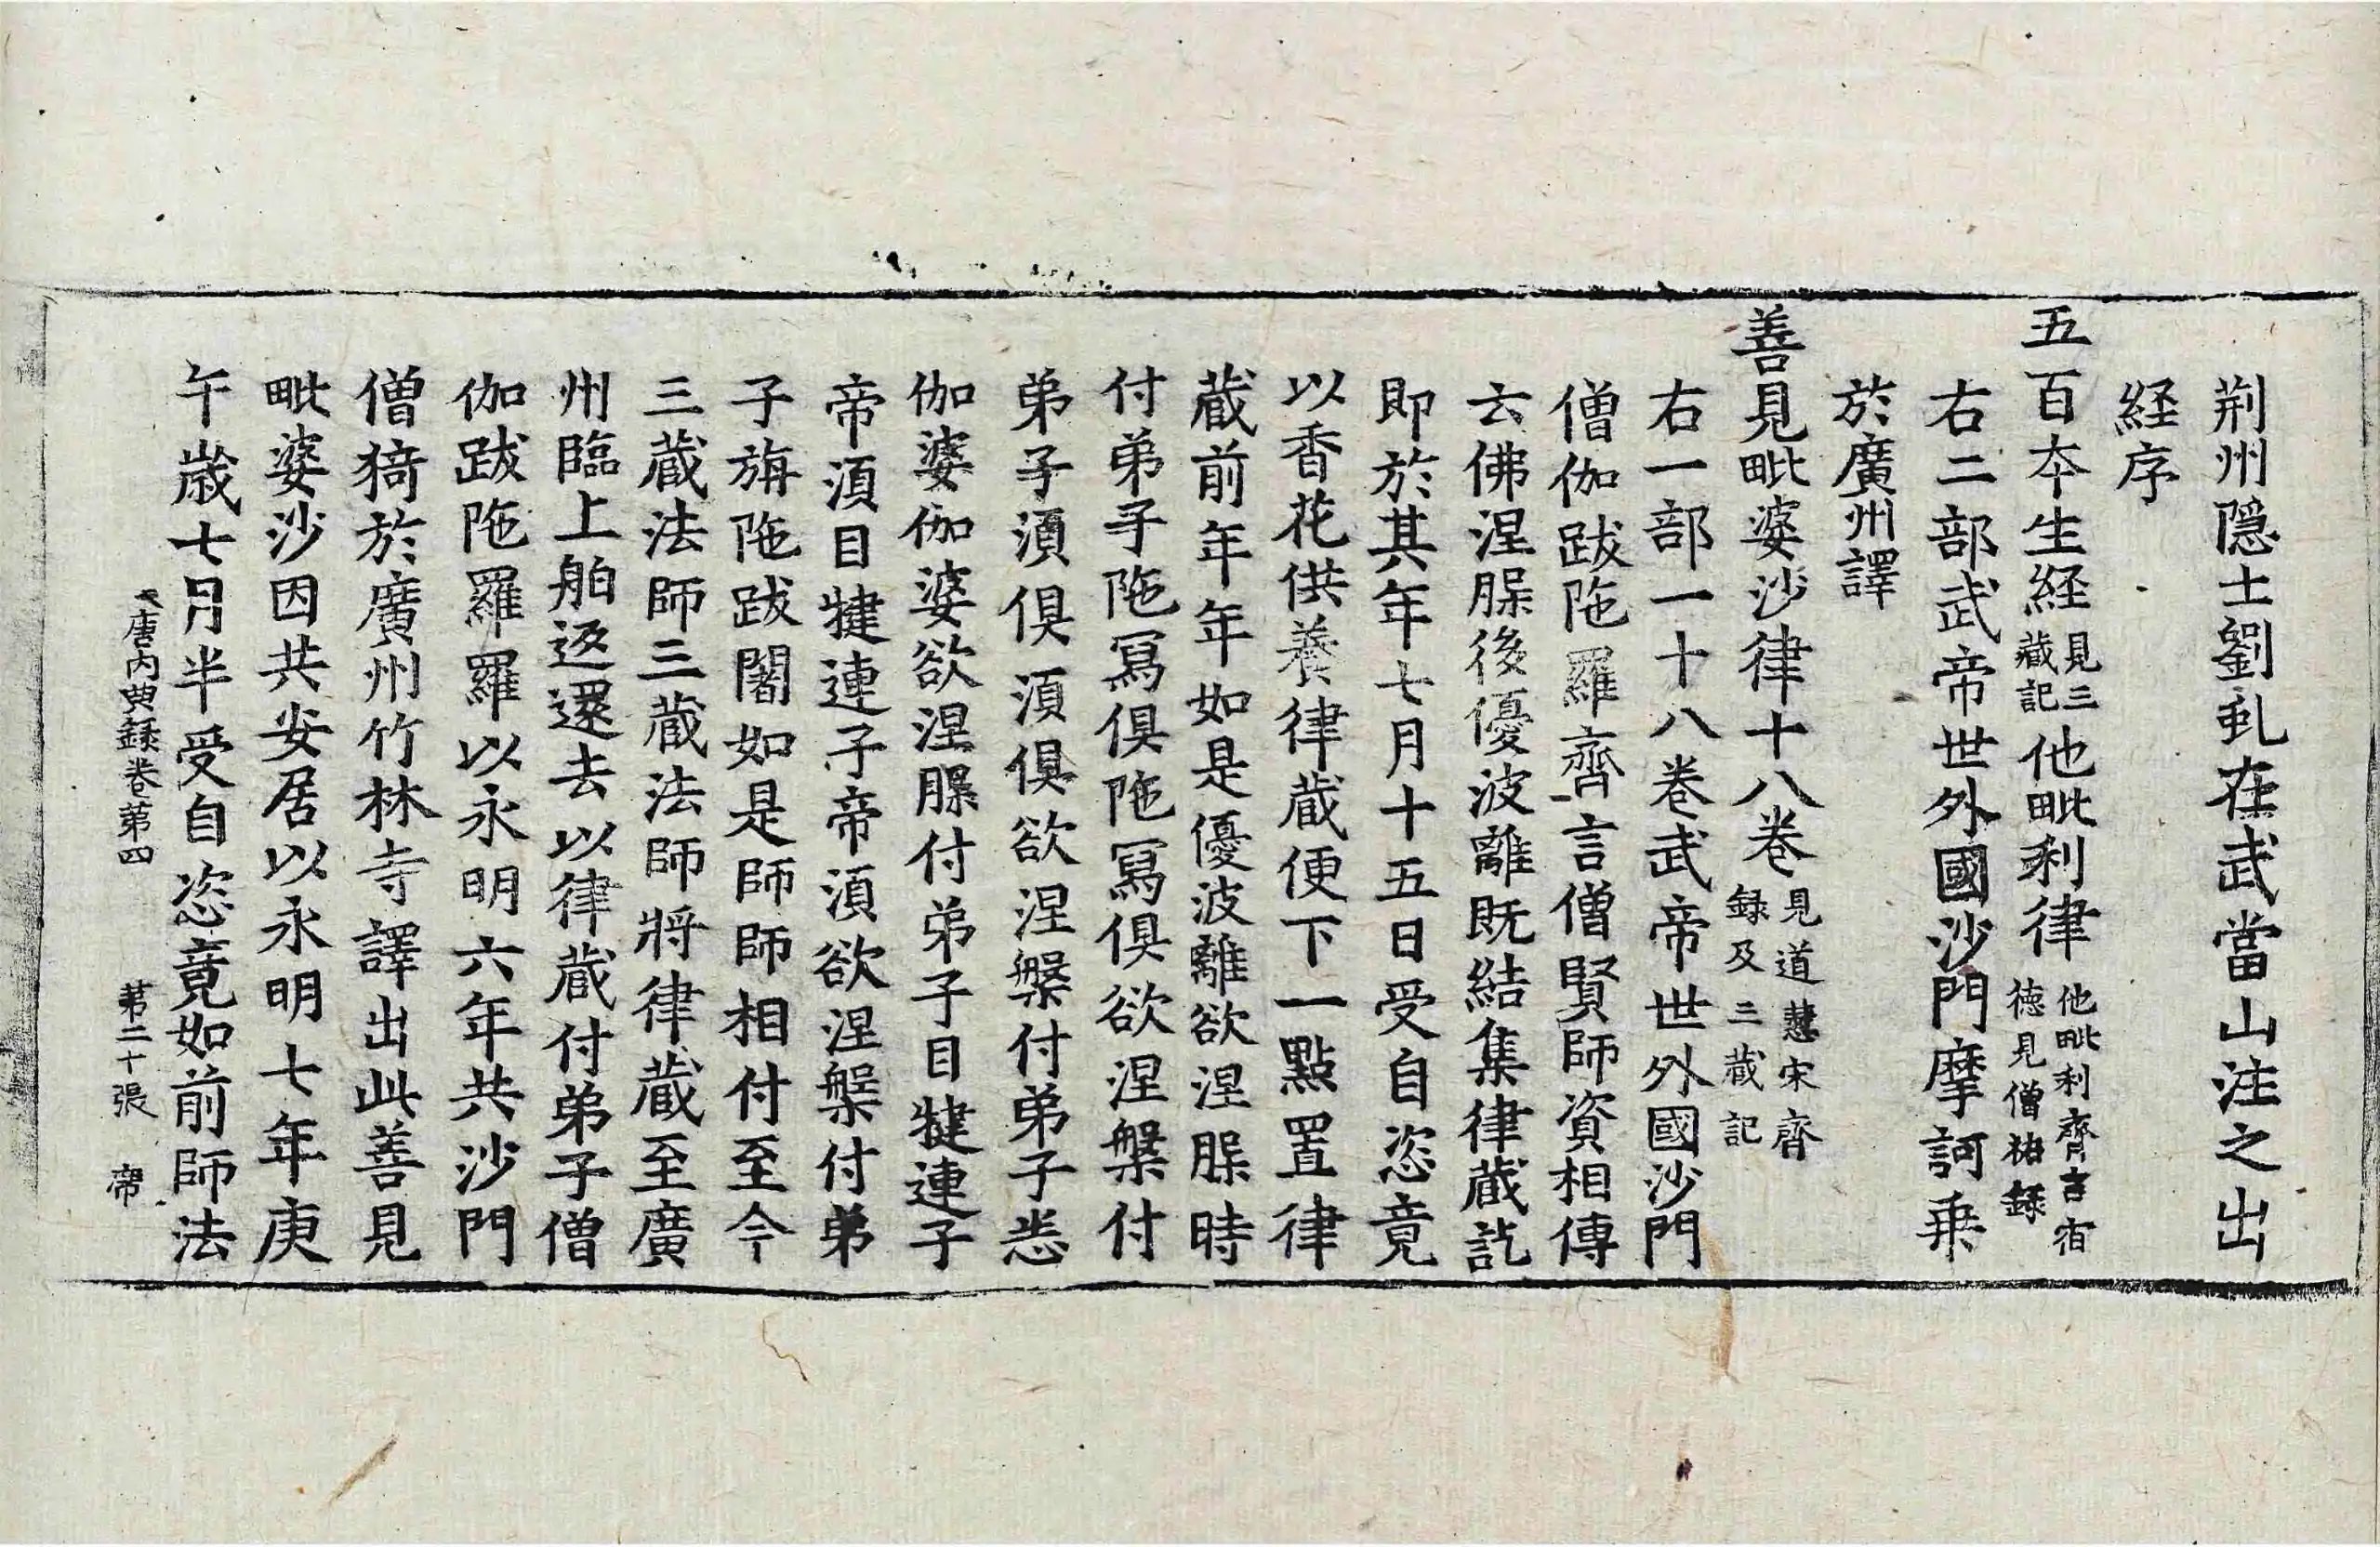 荆州隱士劉虬在武當山注之出
経序
五百夲生経見三藏記他毗利律他毗利齊言宿德見僧祐録
右二部武帝世外國沙門摩訶乗
於廣州譯
善見毗婆沙律十八卷見道慧宋齊録及三藏記
右一部一十八卷武帝世外國沙門
僧伽跋陁羅齊言僧賢師資相傳
云佛涅槃後優波離既結集律藏訖
即於其年七月十五日受自恣竟
以香花供養律藏便下一點置律
藏前年年如是優波離欲涅槃時
付弟子陁寫俱陁寫俱欲涅槃付
弟子湏俱湏俱欲涅槃付弟子悉
伽婆伽婆欲涅槃付弟子目揵連子
帝湏目揵連子帝湏欲涅槃付弟
子旃陁跋闍如是師師相付至今
三藏法師三藏法師將律藏至廣
州臨上舶返還去以律藏付弟子僧
伽跋陁羅羅以永明六年共沙門
僧猗於廣州竹林寺譯出此善見
毗婆沙因共安居以永明七年庚
午歳七月半受自恣竟如前師法
大唐内典録卷第四 第二十張 帝